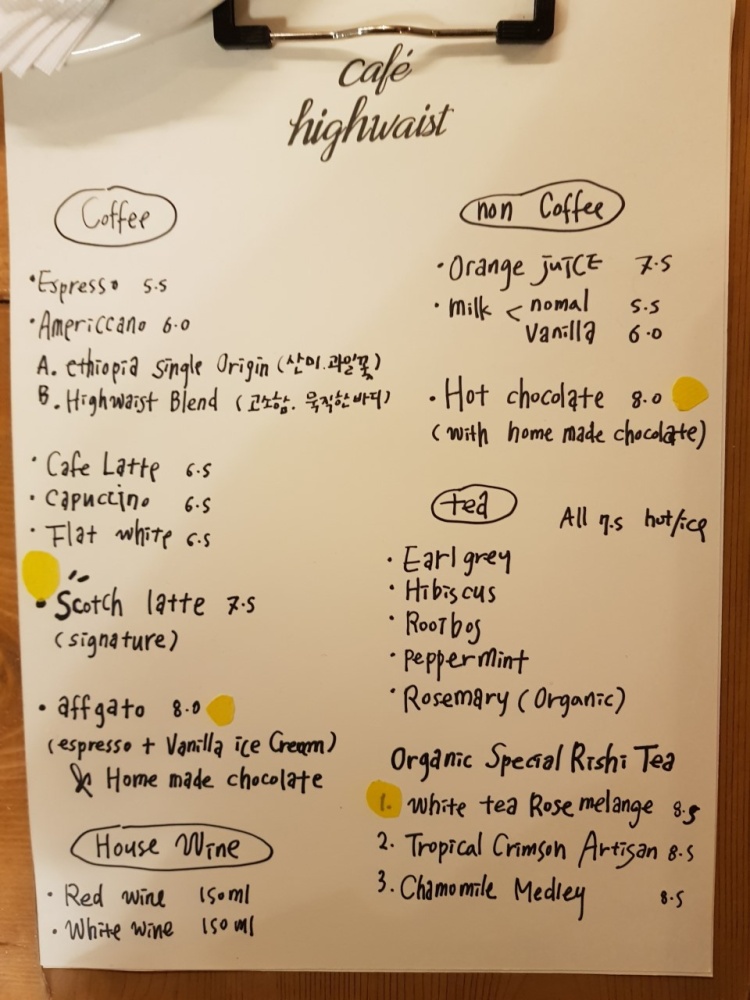 café
highwaist
Coffee
·Espresso 5.5
·Americcano 6.0
A. ethiopia single Origin (산미.과일꽃)
B. Highwaist Blend (고소함. 묵직한바디)
· Cafe Latte 6.5
· Capuccino 6.5
· Flat white 6.5
· Scotch latte 7.5
(signature)
· affgato 8.0
(espresso + Vanilla ice Cream)
& Home made chocolate
House Wine
· Red wine 150ml
· White wine 150ml
non Coffee
· Orange juICE 7.5
· milk < nomal 5.5
Vanilla 6.0
· Hot chocolate 8.0
(with home made chocolate)
tea
All 7.5 hot/ice
· Earl grey
· Hibiscus
· Rooibos
· peppermint
· Rosemary (Organic)
Organic Special Rishi Tea
1. White tea Rose melange 8.5
2. Tropical Crimson Artisan 8.5
3. Chamomile Medley 8.5